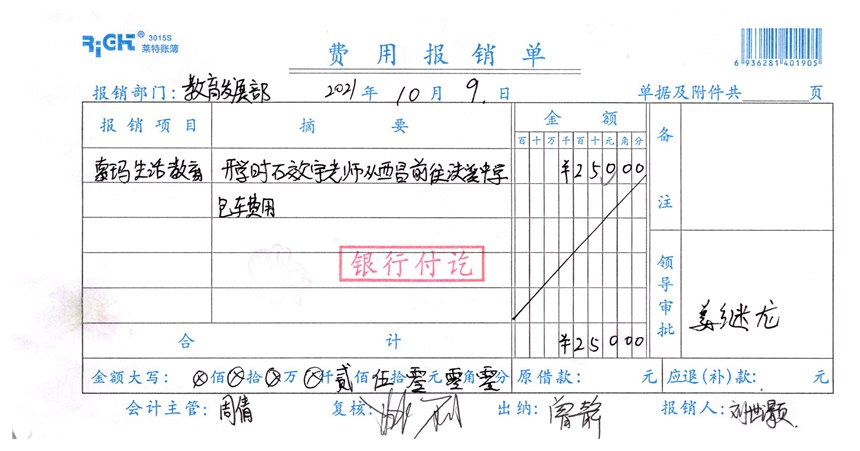 RiGHT® 3015S
莱特账簿
费用报销单
6 936281 401905
报销部门：教育发展部 2021年10月9日 单据及附件共 页
报销项目 摘要 金额 备注
百十万千百十元角分
索玛生活教育 开学时石效宇老师从西昌前往法觉中学 ¥25000
包车费用
银行付讫
领导审批 姜继龙
合计 ¥25000
金额大写：⊗佰⊗拾⊗万⊗仟贰佰伍拾零元零角零分 原借款： 元 应退(补)款： 元
会计主管：周倩 复核： 出纳：曾静 报销人：刘世灏